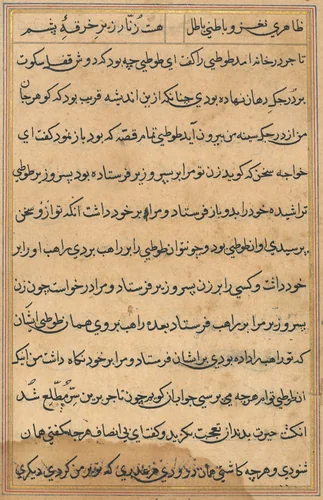 ظاهری نغز و باطنی باطل هست زنار زیر خرقه پشم
تاجر در خانه آمد طوطی را گفت ای طوطی چه بود که دوش قفل سکوت
بر درجک دهان نهاده بودی چنانکه ازین اندیشه قریب بود که گوهر جان
من از درجک سینه من بیرون آید طوطی تمام قصه که بود باز نمود گفت ای
خواجه سخن که گوید زن تو مرا بر پسر وزیر فرستاده بود پسر وزیر طوطی
تراشیده خود را بدو باز فرستاد و مرا بر خود داشت آنکه تو ازو سخن
پرسیدی او آن طوطی بود و چون آن طوطی را بر راهب بردی راهب او را بر
خود داشت و کسی را بر زن پسر وزیر فرستاد و مرا درخواست چون زن
پسر وزیر مرا بر راهب فرستاد بعده راهب بروی همان طوطی ایشان
که تو راهب را داده بودی بر ایشان فرستاد و مرا بر خود نگاه داشت من اینک
آن طوطی توام هرچه می پرسی جواب آن گویم چون تاجر برین سر مطلع شد
انگشت حیرت بدندان تعجب بگزید و گفت ای انصاف هرچه گفتی همان
شنودی و هرچه کاشتی همان درودی که تو بر من کردی دیگری